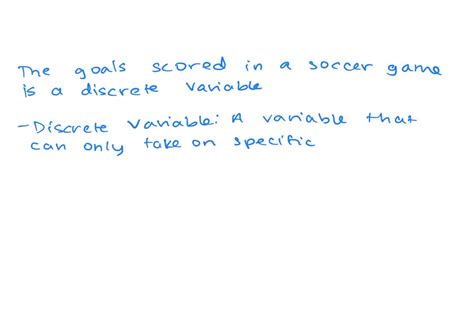 The goals scored in a soccer game
is a discrete variable
-Discrete Variable: A variable that
can only take on specific